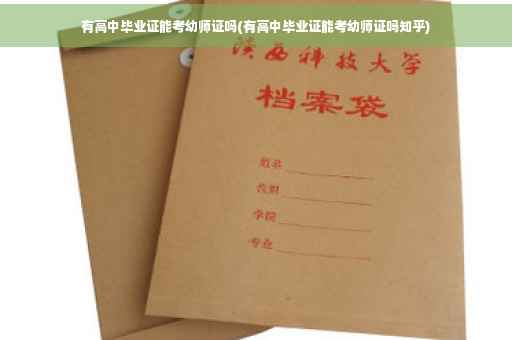 有高中毕业证能考幼师证吗(有高中毕业证能考幼师证吗知乎)
陕西科技大学
档案袋
姓名
学院
专业